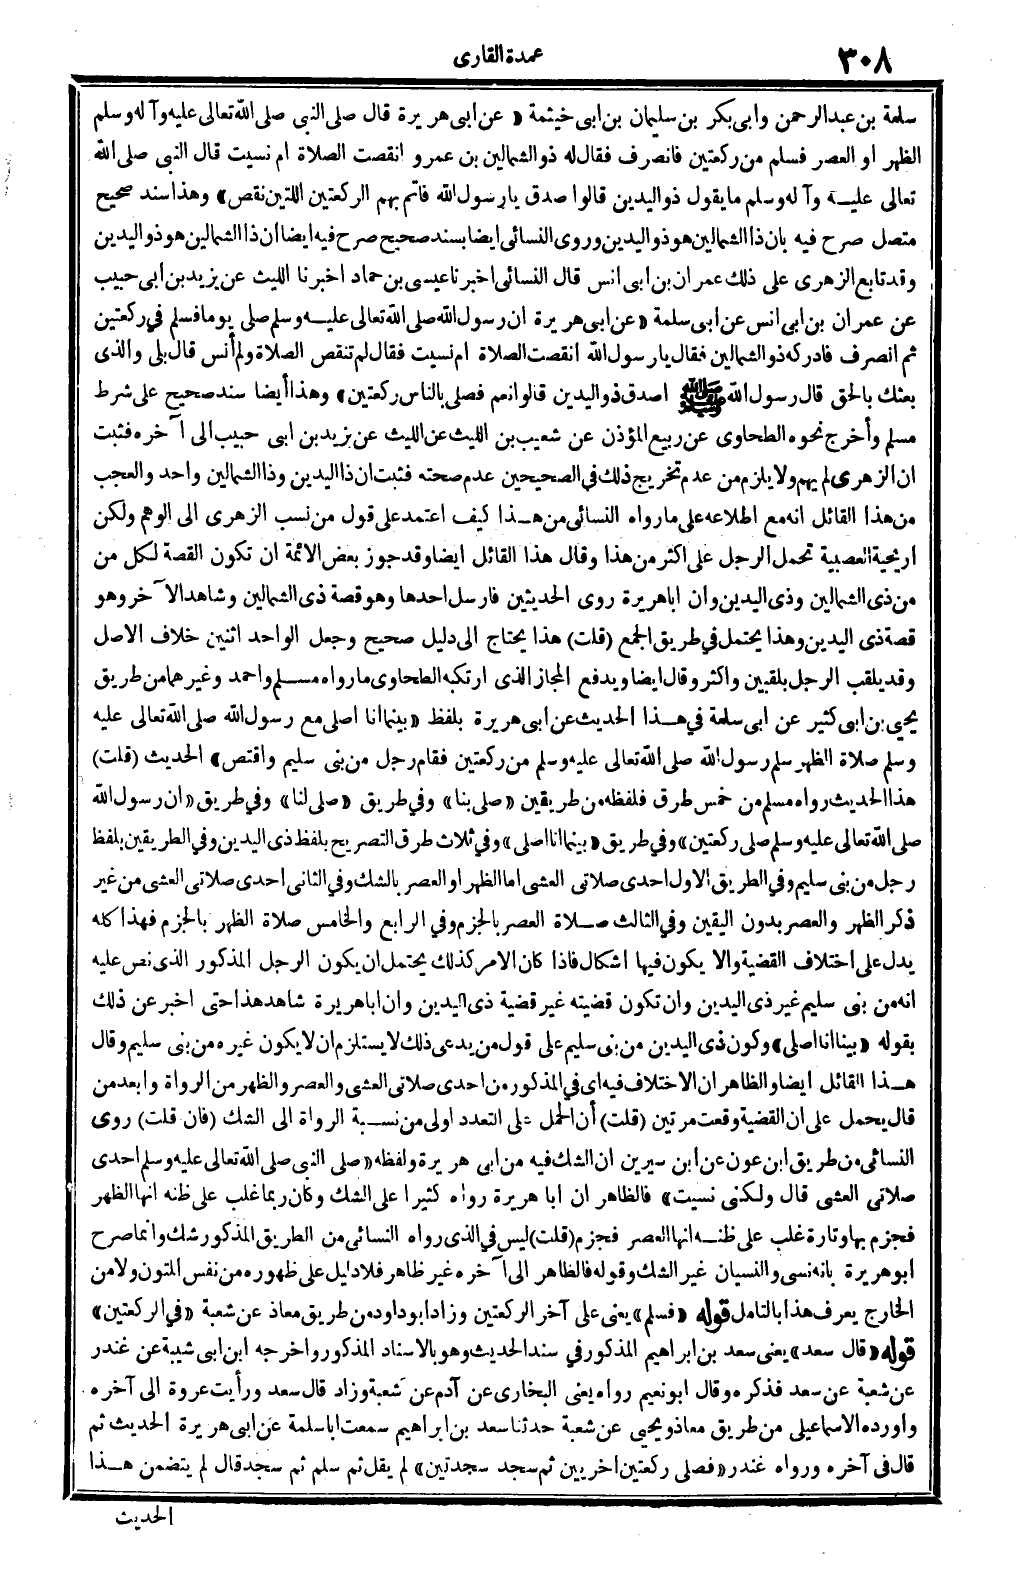 ٣٠٨
عمدة القارى
سلمة بن عبد الرحمن وأبى بكر بن سليمان بن ابى خيثمة « عن ابى هريرة قال صلى النبى صلى الله تعالى عليه وآله وسلم
الظهر او العصر فسلم من ركعتين فانصرف فقال له ذو الشمالين بن عمرو انقصت الصلاة ام نسيت قال النبى صلى الله
تعالى عليه وآله وسلم ما يقول ذو اليدين قالوا صدق يا رسول الله فاتم بهم الركعتين اللتين نقص » وهذا سند صحيح
متصل صرح فيه بان ذا الشمالين هو ذو اليدين وروى النسائى ايضا بسند صحيح صرح فيه ايضا أن ذا الشمالين هو ذو اليدين
وقد تابع الزهرى على ذلك عمران بن ابى انس قال النسائى اخبرنا عيسى بن حماد اخبرنا الليث عن يزيد بن ابى حبيب
عن عمران بن ابى انس عن ابى سلمة « عن ابى هريرة ان رسول الله صلى الله تعالى عليه وسلم صلى يوما فسلم في ركعتين
ثم انصرف فادركه ذو الشمالين فقال يا رسول الله انقصت الصلاة ام نسيت فقال لم تنقص الصلاة ولم أنس قال بلى والذى
بعثك بالحق قال رسول الله ﷺ اصدق ذو اليدين قالوا نعم فصلى بالناس ركعتين » وهذا أيضا سند صحيح على شرط
مسلم وأخرج نحوه الطحاوى عن ربيع المؤذن عن شعيب بن الليث عن الليث عن يزيد بن ابى حبيب الى آخره فثبت
ان الزهرى لم يهم ولا يلزم من عدم تخريج ذلك في الصحيحين عدم صحته فثبت ان ذا اليدين وذا الشمالين واحد والعجب
من هذا القائل انه مع اطلاعه على ما رواه النسائى من هذا كيف اعتمد على قول من نسب الزهرى الى الوهم ولكن
اريحية العصبية تحمل الرجل على اكثر من هذا وقال هذا القائل ايضا وقد جوز بعض الائمة ان تكون القصة لكل من
من ذى الشمالين وذى اليدين وان اباهريرة روى الحديثين فارسل احدها وهو قصة ذى الشمالين وشاهد الآخر وهو
قصة ذى اليدين وهذا يحتمل في طريق الجمع (قلت) هذا يحتاج الى دليل صحيح وجعل الواحد اثنين خلاف الاصل
وقد يلقب الرجل بلقبين واكثر وقال ايضا ويدفع المجاز الذى ارتكبه الطحاوى ما رواه مسلم واحمد وغيرهما من طريق
يحيى بن ابى كثير عن ابى سلمة في هذا الحديث عن ابى هريرة بلفظ « بينما انا اصلى مع رسول الله صلى الله تعالى عليه
وسلم صلاة الظهر سلم رسول الله صلى الله تعالى عليه وسلم من ركعتين فقام رجل من بنى سليم واقتص » الحديث (قلت)
هذا الحديث رواه مسلم من خمس طرق فلفظه من طريقين « صلى بنا » وفي طريق « صلى لنا » وفي طريق « ان رسول الله
صلى الله تعالى عليه وسلم صلى ركعتين » وفي طريق « بينما انا اصلى » وفي ثلاث طرق التصريح بلفظ ذى اليدين وفي الطريقين بلفظ
رجل من بنى سليم وفي الطريق الاول احدى صلاتى العشى اما الظهر او العصر بالشك وفي الثانى احدى صلاتى العشى من غير
ذكر الظهر والعصر بدون اليقين وفي الثالث صلاة العصر بالجزم وفي الرابع والخامس صلاة الظهر بالجزم فهذا كله
يدل على اختلاف القضية والا يكون فيها اشكال فاذا كان الامر كذلك يحتمل ان يكون الرجل المذكور الذى نص عليه
انه من بنى سليم غير ذى اليدين وان تكون قضيته غير قضية ذى اليدين وان اباهريرة شاهد هذا حتى اخبر عن ذلك
بقوله « بينا انا اصلى » وكون ذى اليدين من بنى سليم على قول من يدعى ذلك لا يستلزم ان لا يكون غيره من بنى سليم وقال
هذا القائل ايضا والظاهر ان الاختلاف فيه اى في المذكور من احدى صلاتى العشى والعصر والظهر من الرواة وابعد من
قال يحمل على ان القضية وقعت مرتين (قلت) أن الحمل على التعدد اولى من نسبة الرواة الى الشك (فان قلت) روى
النسائى من طريق ابن عون عن ابن سيرين ان الشك فيه من ابى هريرة ولفظه « صلى النبى صلى الله تعالى عليه وسلم احدى
صلاتى العشى قال ولكنى نسيت » فالظاهر ان ابا هريرة رواه كثيرا على الشك وكان ربما غلب على ظنه انها الظهر
فجزم بها وتارة غلب على ظنه انها العصر فجزم (قلت) ليس في الذى رواه النسائى من الطريق المذكور شك وانما صرح
ابوهريرة بانه نسى والنسيان غير الشك وقوله فالظاهر الى آخره غير ظاهر فلا دليل على ظهوره من نفس المتون ولا من
الخارج يعرف هذا بالتامل قوله « فسلم » يعنى على آخر الركعتين وزاد ابوداود من طريق معاذ عن شعبة « في الركعتين »
قوله « قال سعد » يعنى سعد بن ابراهيم المذكور في سند الحديث وهو بالاسناد المذكور واخرجه ابن ابى شيبة عن غندر
عن شعبة عن سعد فذكره وقال ابونعيم رواه يعنى البخارى عن آدم عن شعبة وزاد قال سعد ورأيت عروة الى آخره
واورده الاسماعيلى من طريق معاذ ويحيى عن شعبة حدثنا سعد بن ابراهيم سمعت اباسلمة عن ابى هريرة الحديث ثم
قال فى آخره ورواه غندر « فصلى ركعتين اخريين ثم سجد سجدتين » لم يقل ثم سلم ثم سجد قال لم يتضمن هذا
الحديث